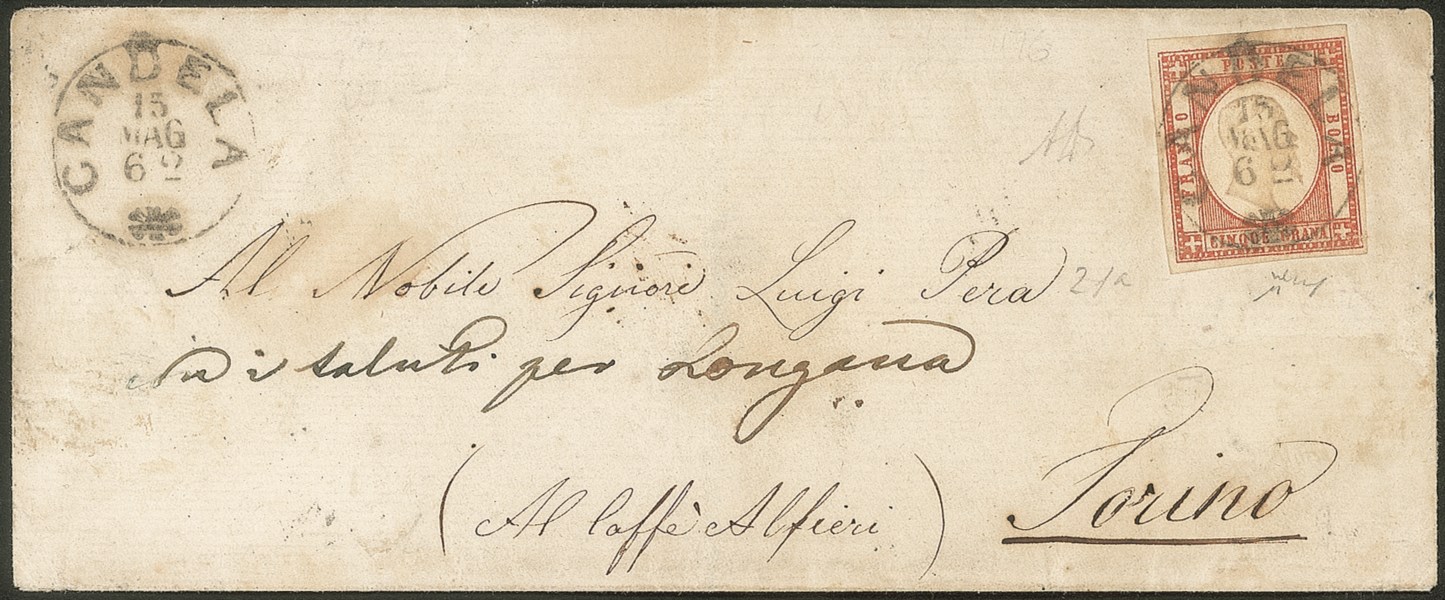 CANDELA
15
MAG
62
POSTE
FRANCO
BOLLO
CINQUE GRANA
CANDELA
15
MAG
62
Al Nobile Signore Luigi Pera
con i saluti per Longana
(Al Caffè Alfieri)
Torino